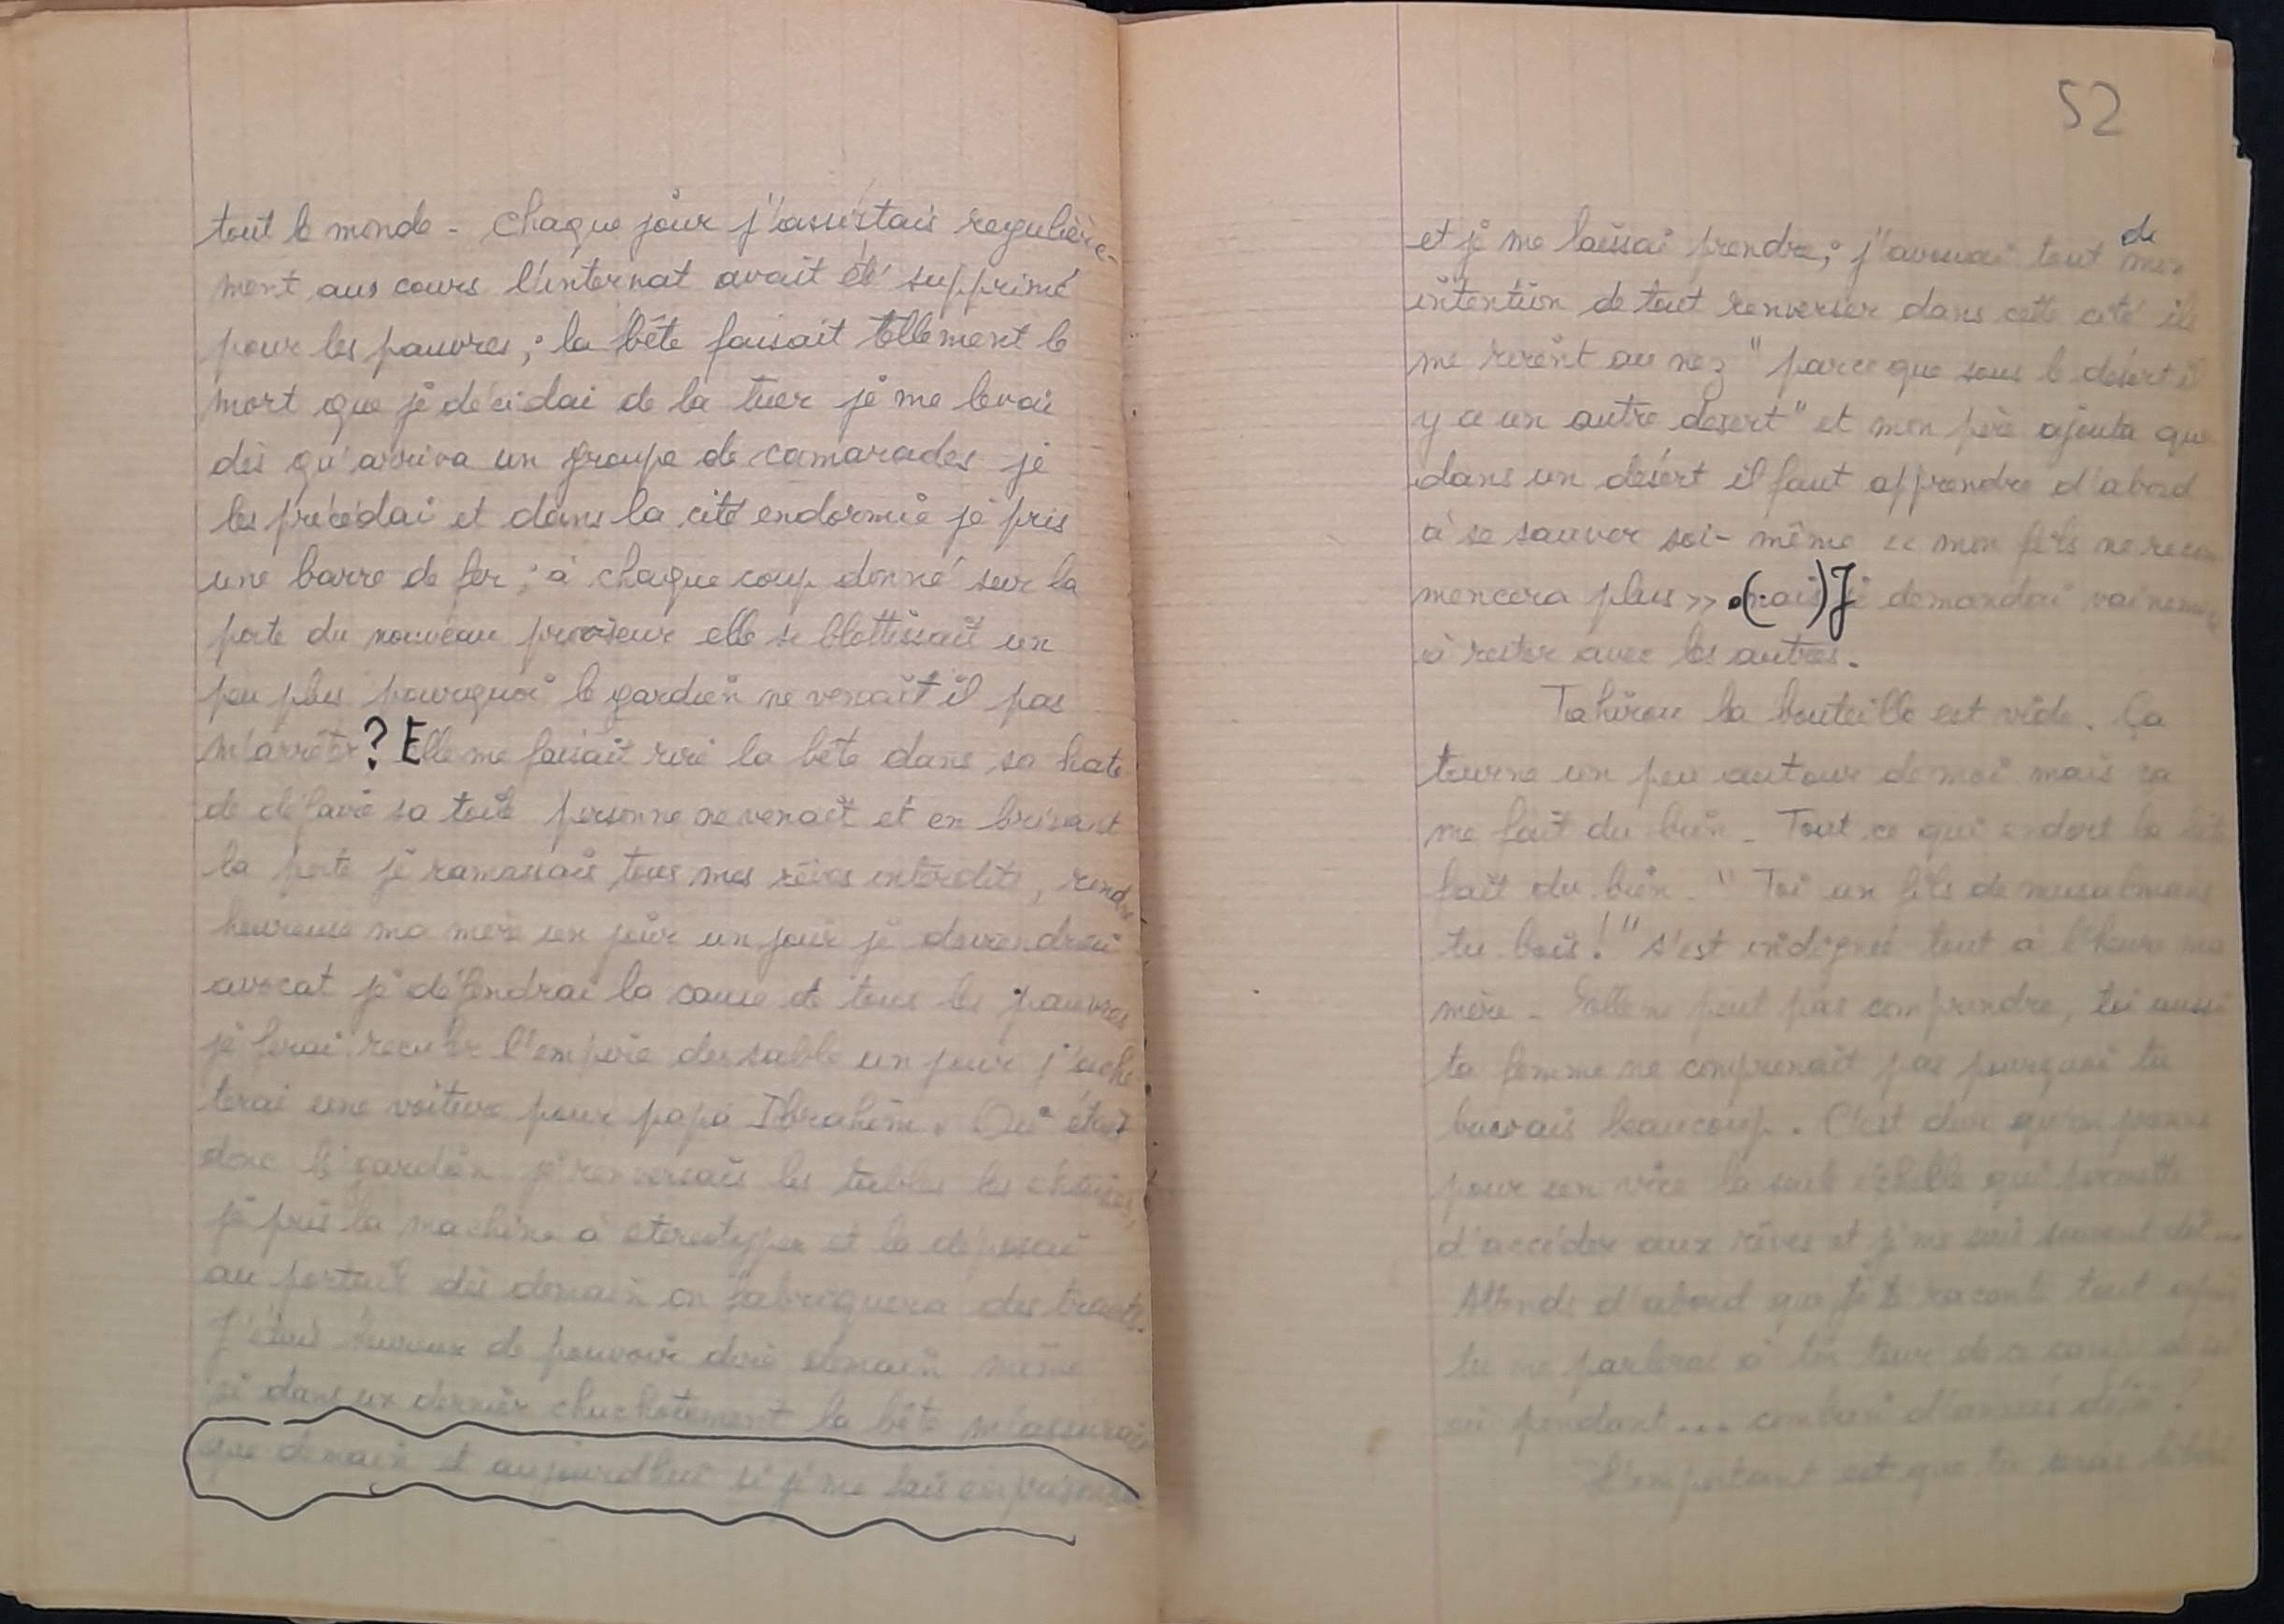 tout le monde - chaque jour j'assistais regulière-
ment aus cours l'internat avait été supprimé
pour les pauvres ; la bête faisait tellement le
mort que je décidai de la tuer je me levai
dès qu'arriva un groupe de camarades je
les précédai et dans la cité endormie je pris
une barre de fer ; à chaque coup donné sur la
porte du nouveau proviseur elle se blottissait un
peu plus pourquoi le gardien ne venait il pas
m'arrêter ? Elle me faisait rire la bête dans sa hate
de défaire sa toile personne ne venait et en brisant
la porte je ramassais tous mes rêves interdits, rendre
heureuse ma mère un jour un jour je deviendrai
avocat je défendrai la cause de tous les pauvres
je ferai reculer l'empire du sable un jour j'ache
terai une voiture pour papa Ibrahim. Où était
donc le gardien je renversais les tables les chaises,
je pris la machine à stereotyper et la déposai
au portail dès demain on fabriquera des tracts.
J'étais heureux de pouvoir dire demain même
si dans un dernier chuchotement la bête m'assurait
que demain et aujourd'hui si je me suis
52
et je me laissai prendre ; j'avouai tout de mon
intention de tout renverser dans cette cité ils
me rirent au nez "parce que sous le désert il
y a un autre desert" et mon père ajouta que
dans un désert il faut apprendre d'abord
à se sauver soi-même « mon fils ne recom
mencera plus » . (mais) Je demandai vainement
à rester avec les autres.
Tahirou la bouteille est vide. Ça
tourne un peu autour de moi mais ça
me fait du bien - Tout ce qui endort la bête
fait du bien. "Toi un fils de musulmans
tu bois !" s'est indignée tout à l'heure ma
mère - Elle ne peut pas comprendre, toi aussi
ta femme ne comprenait pas pourquoi tu
buvais beaucoup. C'est dur qu'on prenne
pour un vice la seule échelle qui permette
d'accéder aux rêves et je me suis souvent dit...
Attends d'abord que je te raconte tout
tu me parleras à ton tour de ce camp
où pendant... combien d'années déjà ?
L'important est que tu seras